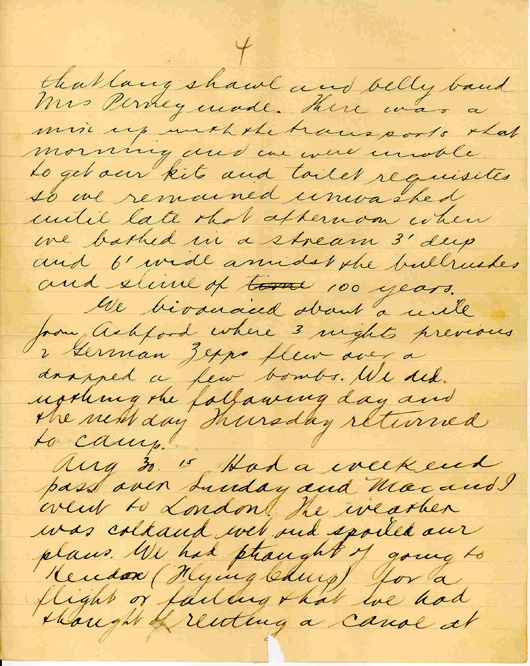 4
that long shawl and belly band
Mrs Perney made. There was a
mix up with the transports that
morning and we were unable
to get our kits and toilet requisites
so we remained unwashed
until late that afternoon when
we bathed in a stream 3' deep
and 6' wide amidst the bullrushes
and slime of time 100 years.
We bivouaced about a mile
from Ashford where 3 nights previous
2 German Zepps flew over &
dropped a few bombs. We did
nothing the following day and
the next day Thursday returned
to camp.
Aug 30. 15 Had a weekend
pass over Sunday and Mac and I
went to London. The weather
was cold and wet and spoiled our
plans. We had thought of going to
Hendon (Flying Camp) for a
flight or failing that we had
thought of renting a canoe at